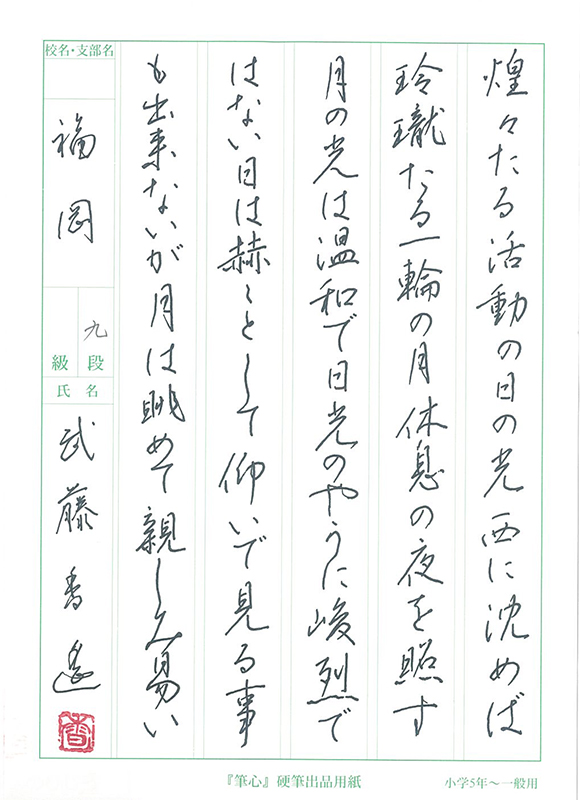 煌々たる活動の日の光西に沈めば
玲瓏たる一輪の月休息の夜を照す
月の光は温和で日光のやうに峻烈で
はない日は赫々として仰いで見る事
も出来ないが月は眺めて親しみ易い
校名・支部名
福岡
九段
級
氏名
武藤香遙
香
『筆心』硬筆出品用紙
小学5年〜一般用